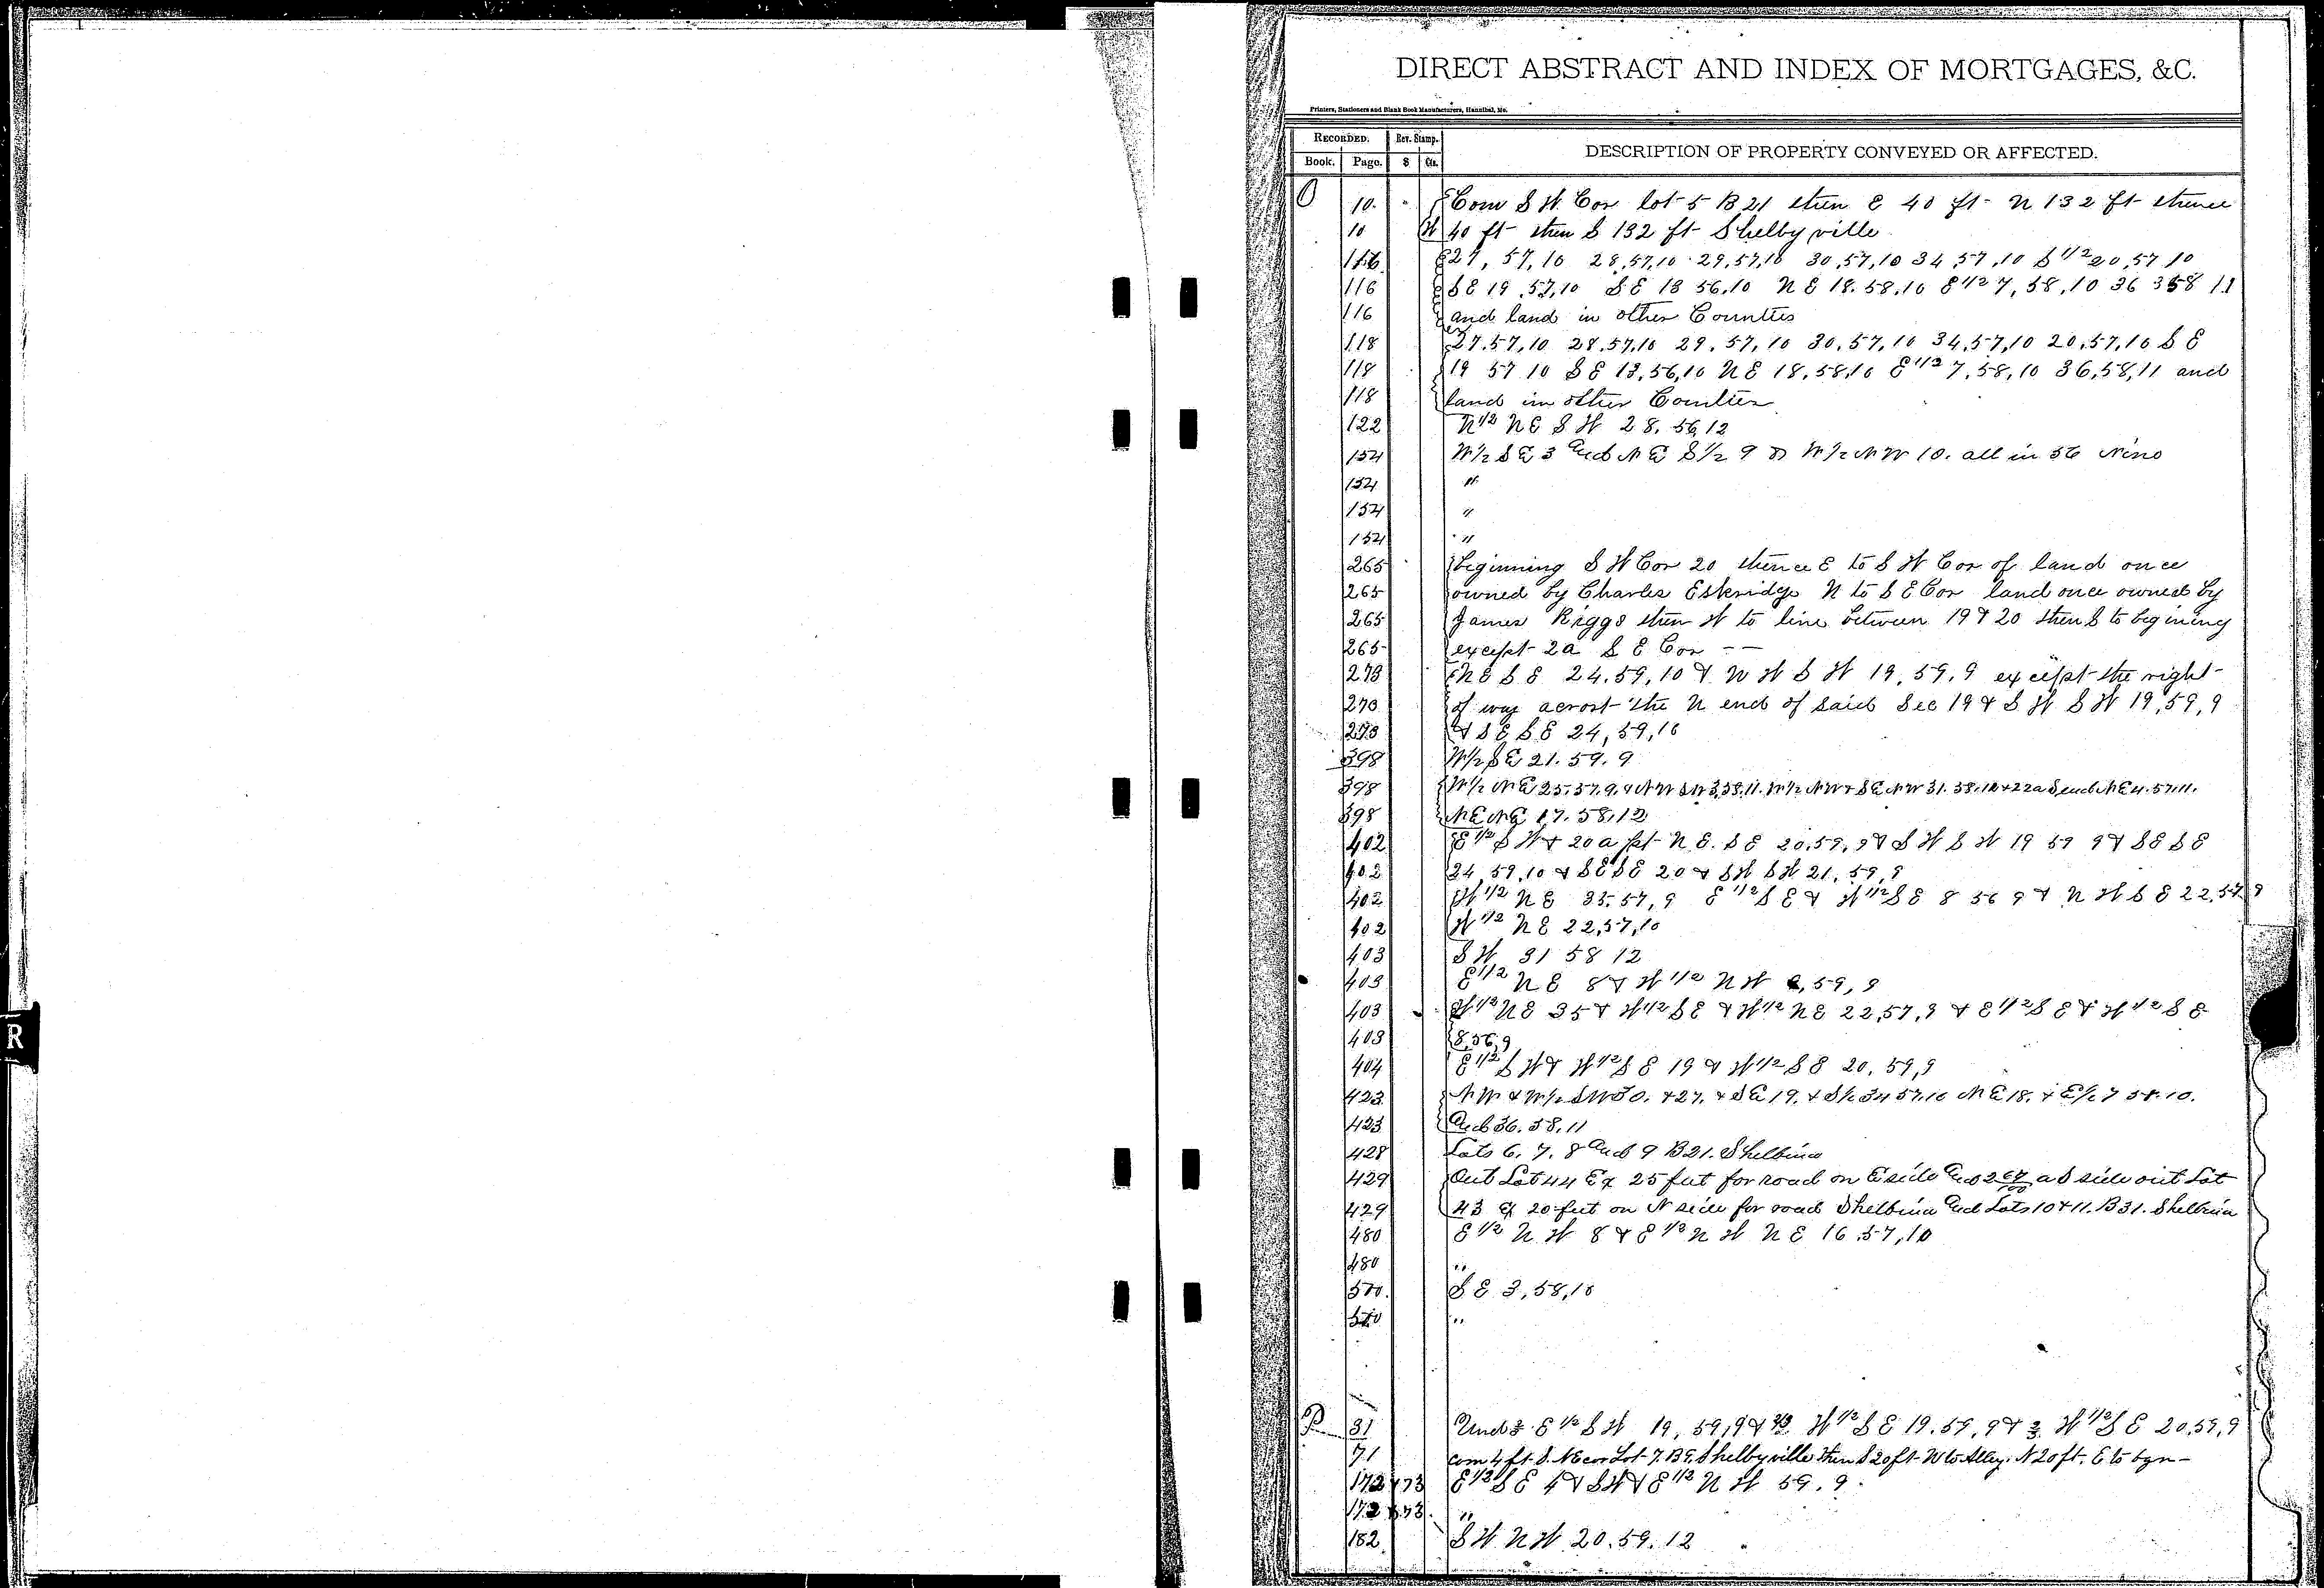 DIRECT ABSTRACT AND INDEX OF MORTGAGES, &C.
Printers, Stationers and Blank Book Manufacturers, Hannibal, Mo.
RECORDED. Rev. Stamp. DESCRIPTION OF PROPERTY CONVEYED OR AFFECTED.
Book. Page. $ Cts.
O 10. Com S W. Cor lot 5 B 21 then E 40 ft N 132 ft thence
10 W 40 ft then S 132 ft Shelbyville
116 27, 57, 10 28, 57, 10 29, 57, 10 30, 57, 10 34, 57, 10 S 1/2 20, 57 10
116 S E 19, 57, 10 S E 13 56, 10 N E 18. 58. 10 E 1/2 7, 58, 10 36 58 11
116 and land in other Counties
118 27. 57, 10 28. 57, 10 29, 57, 10 30, 57, 10 34, 57, 10 20, 57, 10 S E
118 19 57 10 S E 13, 56, 10 N E 18, 58, 10 E 1/2 7, 58, 10 36, 58, 11 and
118 land in other Counties
122 N 1/2 N E S W 28. 56, 12
154 W 1/2 S E 3 and N E S 1/2 9 & W 1/2 N W 10. all in 56 Nine
154 "
154 "
154 "
265 beginning S W Cor 20 thence E to S W Cor of land once
265 owned by Charles Eskridge N to S E Cor land once owned by
265 James Riggs then W to line between 19 & 20 then S to begining
265 except 2a S E Cor
273 N E S E 24, 59, 10 & N W S W 19, 59, 9 except the right
273 of way acrost the N end of said Sec 19 & S W S W 19, 59, 9
273 & S E S E 24, 59, 10
398 W 1/2 S E 21. 59. 9
398 W 1/2 N E 25. 57. 9. & N W S W 3. 58. 11. W 1/2 N W & S E N W 31. 58. 12 & 22a S end N E 4. 57. 11.
398 N E N E 17. 58. 12
402 E 1/2 S W & 20 a pt N. E. S E 20, 59, 9 & S W S W 19 59 9 & S E S E
402 24, 59, 10 & S E S E 20 & S W S W 21, 59, 9
402 W 1/2 N E 35, 57, 9 E 1/2 S E & W 1/2 S E 8 56 9 & N W S E 22, 57, 9
402 W 1/2 N E 22, 57, 10
403 S W 31 58 12
403 E 1/2 N E 8 & W 1/2 N W , 59, 9
403 W 1/2 N E 35 & W 1/2 S E & W 1/2 N E 22, 57, 9 & E 1/2 S E & W 1/2 S E
403 8, 56, 9
404 E 1/2 S W & W 1/2 S E 19 & W 1/2 S E 20, 59, 9
423 N W & W 1/2 S W 30. & 27. & S E 19. & S 1/2 34 57. 10 N E 18. & E 1/2 7 58. 10.
423 and 36. 58. 11
428 Lots 6. 7. 8 and 9 B 21. Shelbina
429 Out Lot 44 Ex 25 feet for road on E side and 2 67/100 a S side out Lot
429 43 Ex 20 feet on N side for road Shelbina and Lots 10 & 11. B 31. Shelbina
480 E 1/2 N W 8 & E 1/2 N W N E 16, 57, 10
480 "
570. S E 3, 58, 10
570 "
P 31 Und 2/3 E 1/2 S W 19, 59, 9 & 2/3 W 1/2 S E 19. 59, 9 & 2/3 W 1/2 S E 20, 59, 9
71 com 4 ft. S. N E cor Lot 7. B 9. Shelbyville then S 20 ft W to Alley. N 20 ft. E to bgn
172 & 73 E 1/2 S E 4 & S W & E 1/2 N W 59. 9.
172 & 73. "
182 S W N W 20. 59. 12
R